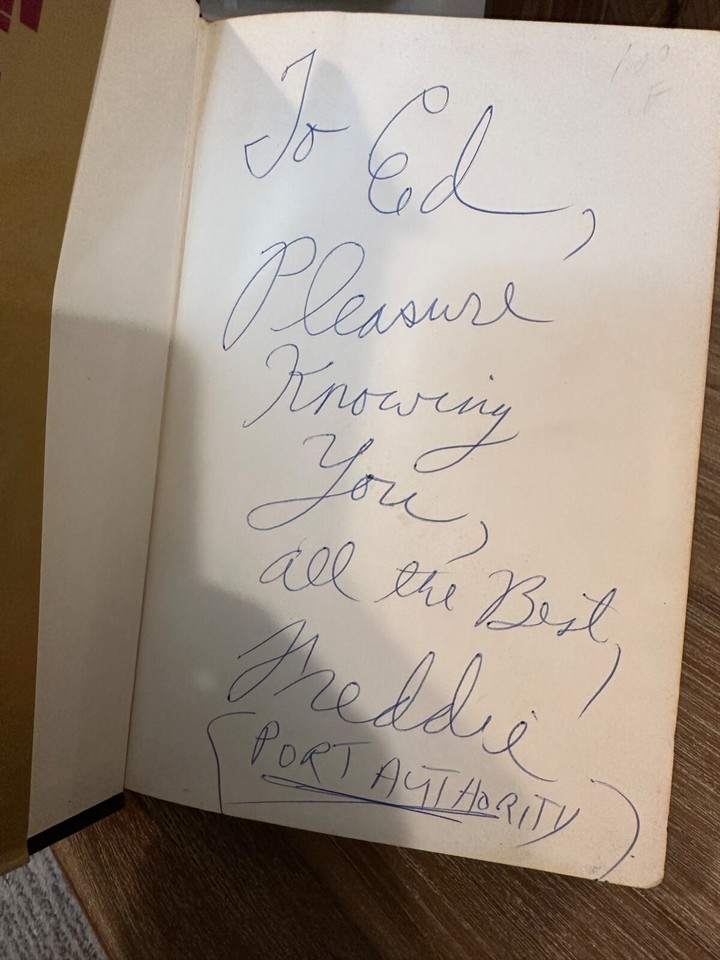 To Ed,
Pleasure
Knowing
You,
all the Best,
Freddie
(PORT AUTHORITY)